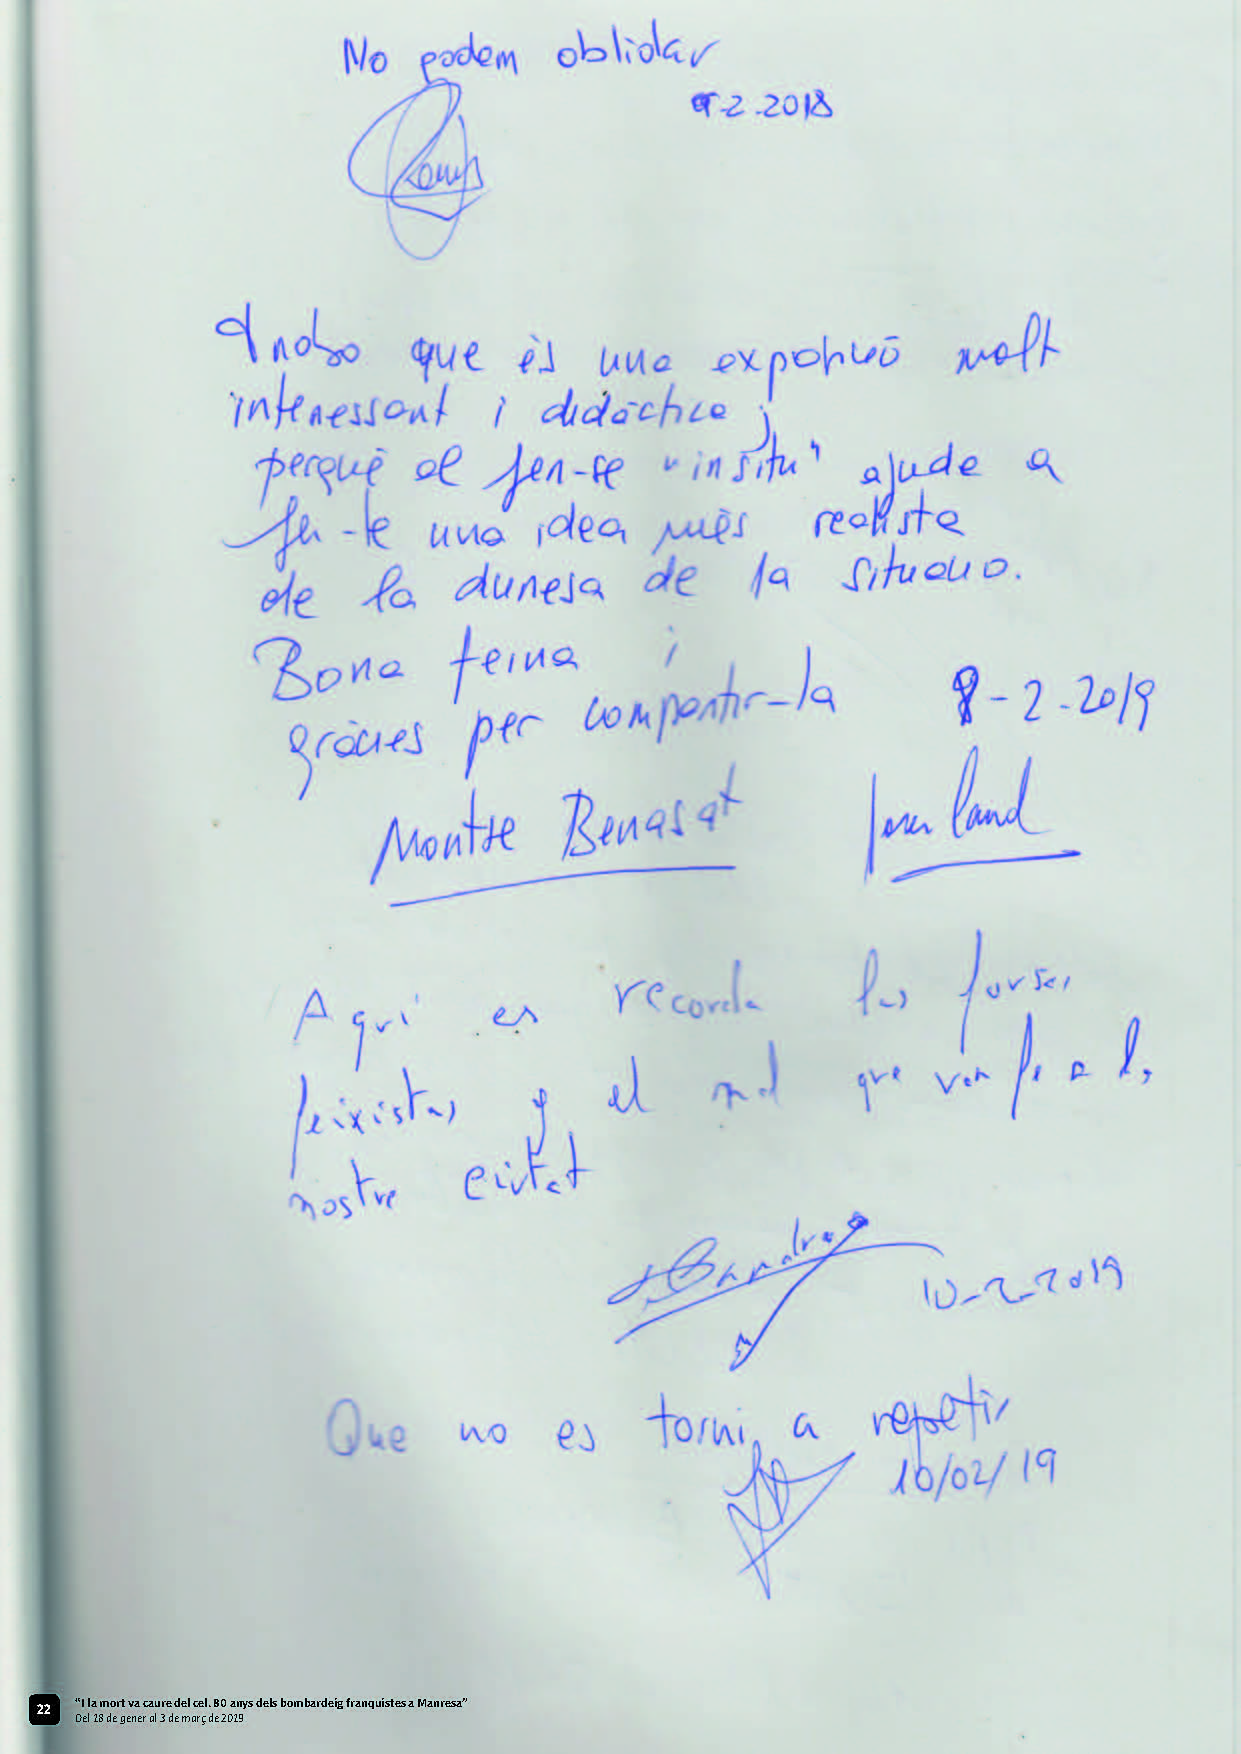 No podem oblidar
-2-2018
Trobo que és una exposició molt
interessant i didàctica ;
perquè al fer-se "in situ" ajuda a
fer-te una idea més realista
de la duresa de la situació.
Bona feina i
gràcies per compartir-la 8-2-2019
Montse Benasat
Aquí es recorda las forses
feixistas y el mal que van fe a la
nostre ciutat
10-2-2019
Que no es torni a repetir
10/02/19
22
"I la mort va caure del cel. 80 anys dels bombardeig franquistes a Manresa"
Del 18 de gener al 3 de març de 2019